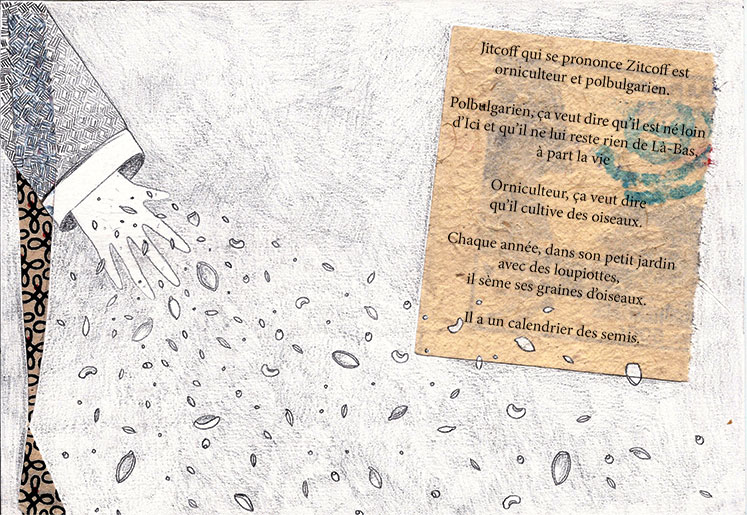 Jitcoff qui se prononce Zitcoff est
orniculteur et polbulgarien.
Polbulgarien, ça veut dire qu'il est né loin
d'Ici et qu'il ne lui reste rien de Là-Bas,
à part la vie
Orniculteur, ça veut dire
qu'il cultive des oiseaux.
Chaque année, dans son petit jardin
avec des loupiottes,
il sème ses graines d'oiseaux.
Il a un calendrier des semis.